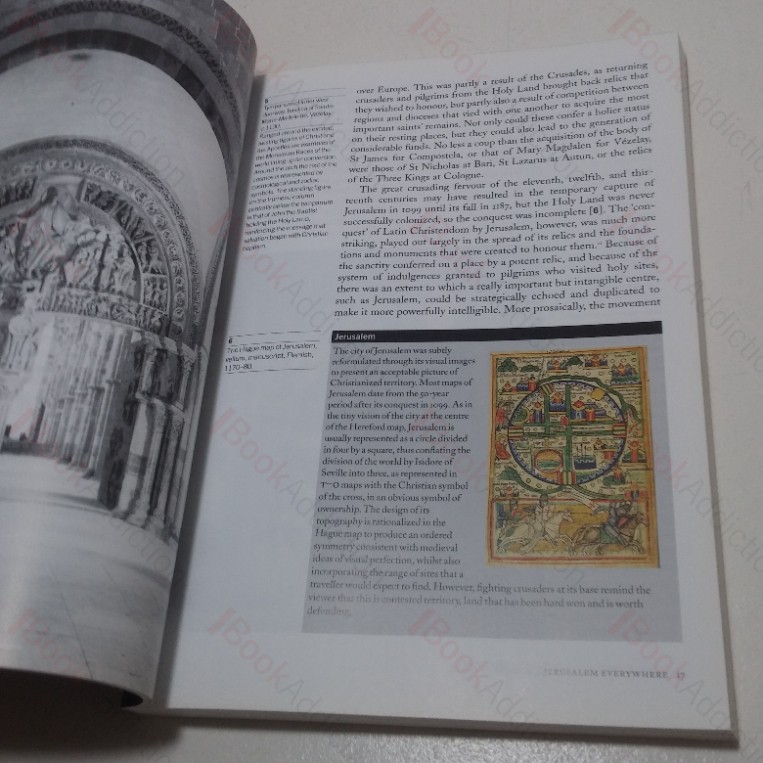 over Europe. This was partly a result of the Crusades, as returning
crusaders and pilgrims from the Holy Land brought back relics that
they wished to honour, but partly also a result of competition between
regions and dioceses that vied with one another to acquire the most
important saints' remains. Not only could these confer a holier status
on their resting places, but they could also lead to the generation of
considerable funds. No less a coup than the acquisition of the body of
St James for Compostela, or that of Mary Magdalen for Vézelay,
were those of St Nicholas at Bari, St Lazarus at Autun, or the relics
of the Three Kings at Cologne.
The great crusading fervour of the eleventh, twelfth, and thir-
teenth centuries may have resulted in the temporary capture of
Jerusalem in 1099 until its fall in 1187, but the Holy Land was never
successfully colonized, so the conquest was incomplete [6]. The 'con-
quest' of Latin Christendom by Jerusalem, however, was much more
striking, played out largely in the spread of its relics and the founda-
tions and monuments that were created to honour them. Because of
the sanctity conferred on a place by a potent relic, and because of the
system of indulgences granted to pilgrims who visited holy sites,
there was an extent to which a really important but intangible centre,
such as Jerusalem, could be strategically echoed and duplicated to
make it more powerfully intelligible. More prosaically, the movement
6
The Hague map of Jerusalem,
vellum, manuscript, Flemish,
1170–80
Jerusalem
The city of Jerusalem was subtly
reformulated through its visual images
to present an acceptable picture of
Christianized territory. Most maps of
Jerusalem date from the 50-year
period after its conquest in 1099. As in
the tiny vision of the city at the centre
of the Hereford map, Jerusalem is
usually represented as a circle divided
in four by a square, thus conflating the
division of the world by Isidore of
Seville into three, as represented in
T–O maps with the Christian symbol
of the cross, in an obvious symbol of
ownership. The design of its
topography is rationalized in the
Hague map to produce an ordered
symmetry consistent with medieval
ideas of visual perfection, whilst also
incorporating the range of sites that a
traveller would expect to find. However, fighting crusaders at its base remind the
viewer that this is contested territory, land that has been hard won and is worth
defending.
JERUSALEM EVERYWHERE 17
BookAddiction